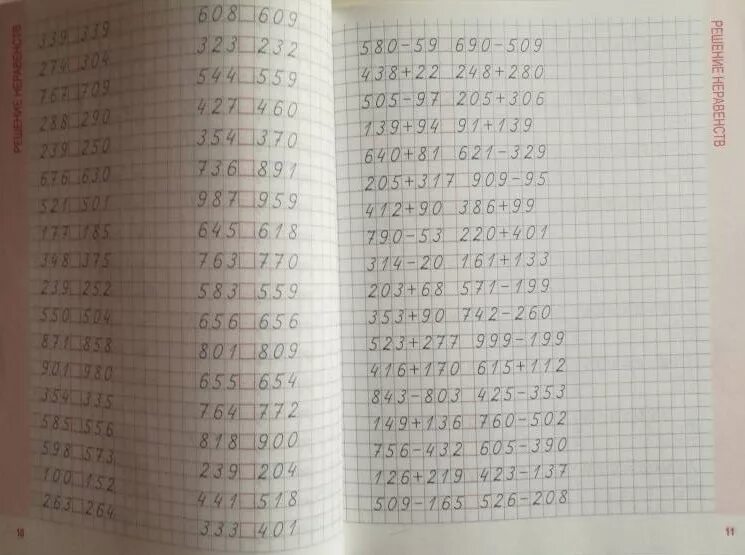 РЕШЕНИЕ НЕРАВЕНСТВ
339 □ 339
274 □ 304
767 □ 709
288 □ 290
239 □ 250
676 □ 630
521 □ 501
177 □ 185
348 □ 375
239 □ 252
550 □ 504
871 □ 858
901 □ 980
354 □ 335
585 □ 556
598 □ 573
100 □ 152
263 □ 264
608 □ 609
323 □ 232
544 □ 559
427 □ 460
354 □ 370
736 □ 891
987 □ 959
645 □ 618
763 □ 770
583 □ 559
656 □ 656
801 □ 809
655 □ 654
764 □ 772
818 □ 900
239 □ 204
441 □ 518
333 □ 401
10
580-59 □ 690-509
438+22 □ 248+280
505-97 □ 205+306
139+94 □ 91+139
640+81 □ 621-329
205+317 □ 909-95
412+90 □ 386+99
790-53 □ 220+401
314-20 □ 161+133
203+68 □ 571-199
353+90 □ 742-260
523+277 □ 999-199
416+170 □ 615+112
843-803 □ 425-353
149+136 □ 760-502
756-432 □ 605-390
126+219 □ 423-137
509-165 □ 526-208
РЕШЕНИЕ НЕРАВЕНСТВ
11